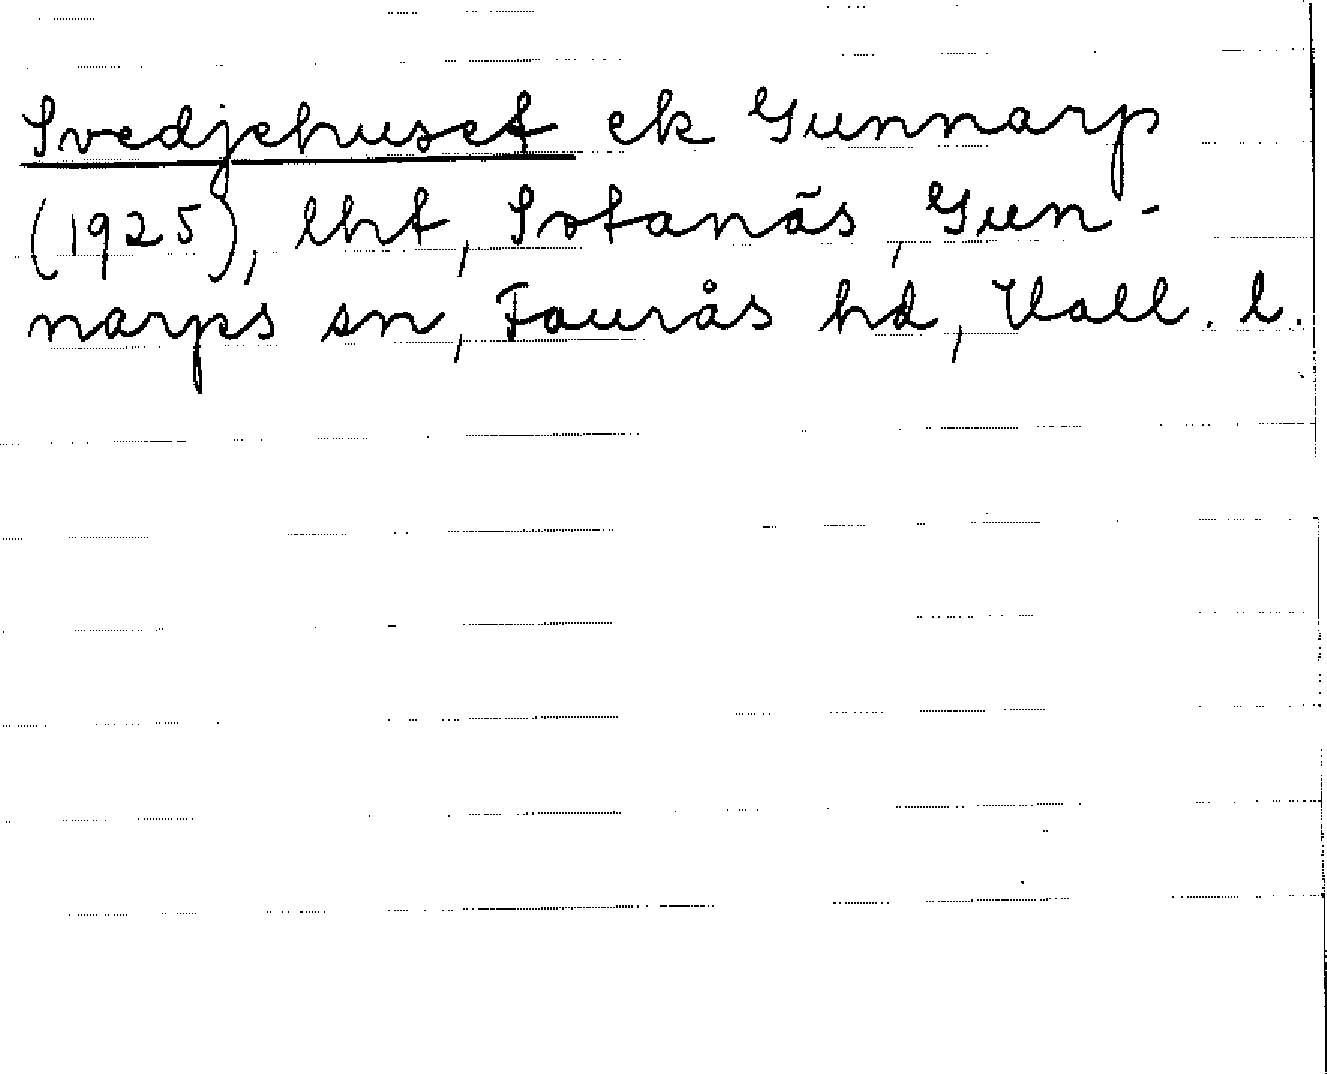 Svedjehuset ek Gunnarp
(1925), lht, Sotanäs, Gun-
narps sn, Faurås hd, Hall. l.